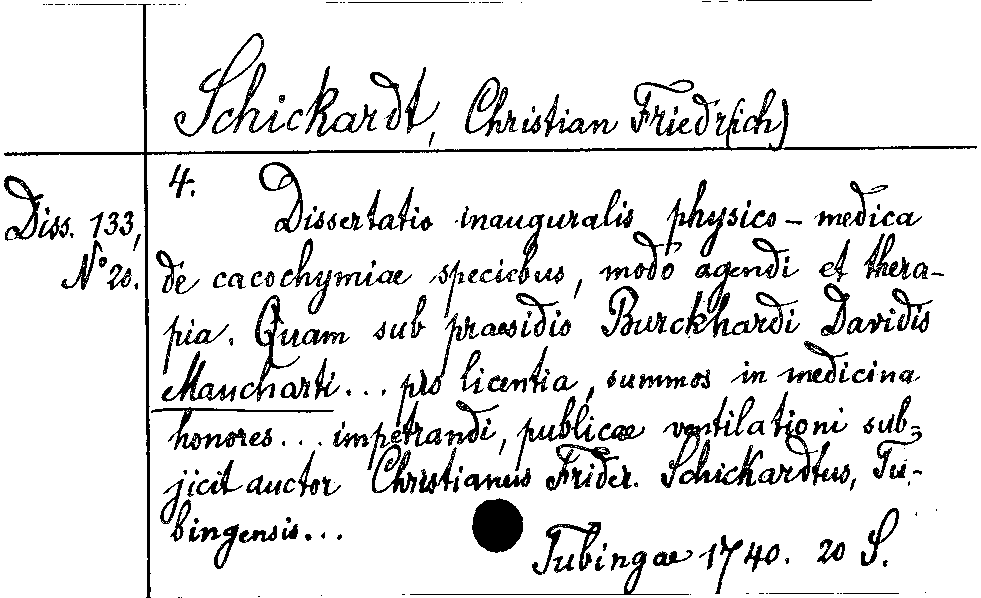 Schickardt, Christian Friedr(ich)
4.
Diss. 133,
N° 20.
Dissertatio inauguralis physico-medica
de cacochymiae speciebus, modo agendi et thera-
pia. Quam sub praesidio Burckhardi Davidis
Maucharti... pro licentia, summos in medicina
honores... impetrandi, publicae ventilationi sub-
jicit auctor Christianus Frider. Schickardtus, Tu-
bingensis...
Tubingae 1740. 20 S.